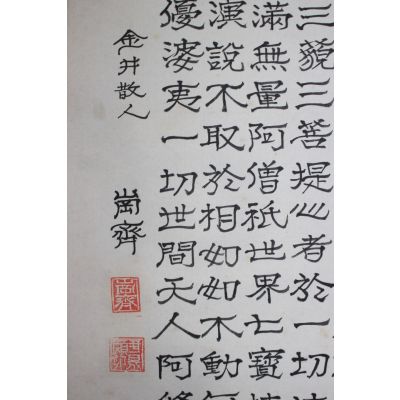 三藐三菩提心者於一切
滿無量阿僧祇世界七寶
演說不取於相如如不動
優婆夷一切世間天人阿修
金井散人
齊